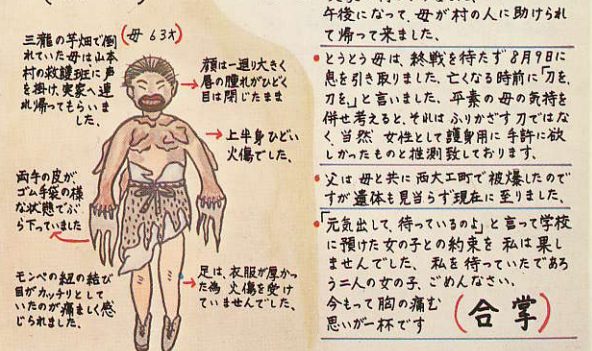 (母 63才)
三瀧の芋畑で倒
れていた母は山本
村の救護班に声
を掛け、実家へ連
れ帰ってもらいま
した。
顔は一廻り大きく
唇の腫れがひどく
目は閉じたまま
上半身ひどい
火傷でした、
両手の皮が
ゴム手袋の様
な状態でぶ
ら下っていました
モンペの紐の結び
目がカッチリとして
いたのが痛ましく感
じられました。
足は、衣服が厚かっ
た為 火傷を受け
ていませんでした、
午後になって、母が村の人に助けられ
て帰って来ました、
• とうとう母は、終戦を待たず 8月9日に
息を引き取りました、亡くなる時前に「刀を、
刀を、」と言いました、平素の母の気持を
併せ考えると、それはふりかざす刀ではな
く、当然、女性として護身用に手許に欲
しかったものと推測致しております、
• 父は母と共に西大工町で被爆したので
すが遺体も見当らず現在に至りました、
• 「元気出して、待っているのよ」と言って学校
に預けた女の子との約束を私は果し
ませんでした、私を待っていたであろ
う二人の女の子、ごめんなさい、
今もって胸の痛む
思いが一杯です
(合掌)